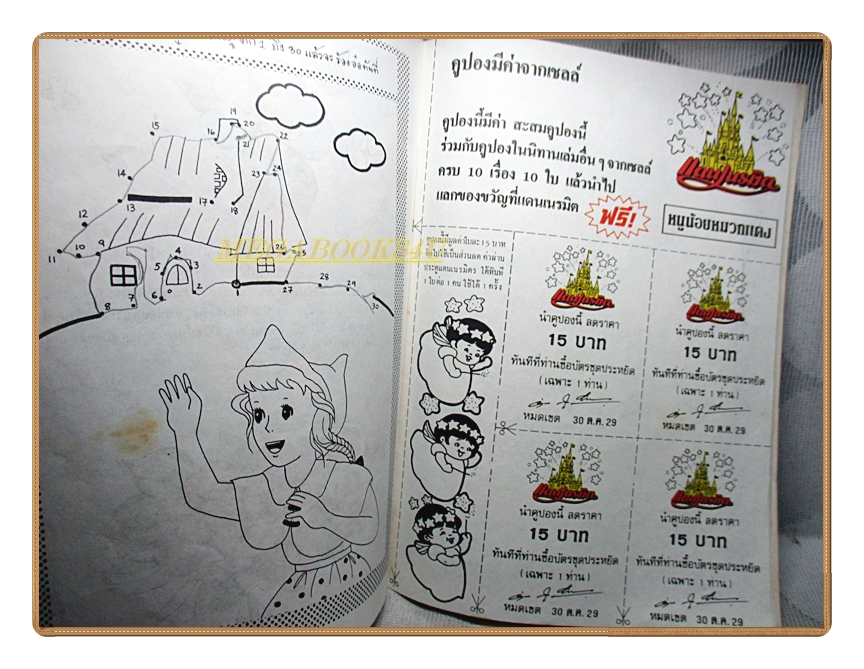 1 ถึง 30 แล้วจะ
15
19
20
16
21
22
14
23
24
13
17
18
12
11
10
9
26
25
5
4
3
8
7
6
2
1
27
28
29
30
คูปองมีค่าจากเซลล์
คูปองนี้มีค่า สะสมคูปองนี้
ร่วมกับคูปองในนิทานเล่มอื่น ๆ จากเซลล์
ครบ 10 เรื่อง 10 ใบ แล้วนำไป
แลกของขวัญที่แดนเนรมิต
ฟรี!
แดนเนรมิต
หนูน้อยหมวกแดง
มูลค่าใบละ 15 บาท
ใช้เป็นส่วนลด ค่าผ่าน
ประตูแดนเนรมิตร ได้ทันที
1 ใบต่อ 1 คน ใช้ได้ 1 ครั้ง
แดนเนรมิต
นำคูปองนี้ ลดราคา
15 บาท
ทันทีที่ท่านซื้อบัตรชุดประหยัด
(เฉพาะ 1 ท่าน)
หมดเขต 30 ต.ค. 29
แดนเนรมิต
นำคูปองนี้ ลดราคา
15 บาท
ทันทีที่ท่านซื้อบัตรชุดประหยัด
(เฉพาะ 1 ท่าน)
หมดเขต 30 ต.ค. 29
แดนเนรมิต
นำคูปองนี้ ลดราคา
15 บาท
ทันทีที่ท่านซื้อบัตรชุดประหยัด
(เฉพาะ 1 ท่าน)
หมดเขต 30 ต.ค. 29
แดนเนรมิต
นำคูปองนี้ ลดราคา
15 บาท
ทันทีที่ท่านซื้อบัตรชุดประหยัด
(เฉพาะ 1 ท่าน)
หมดเขต 30 ต.ค. 29